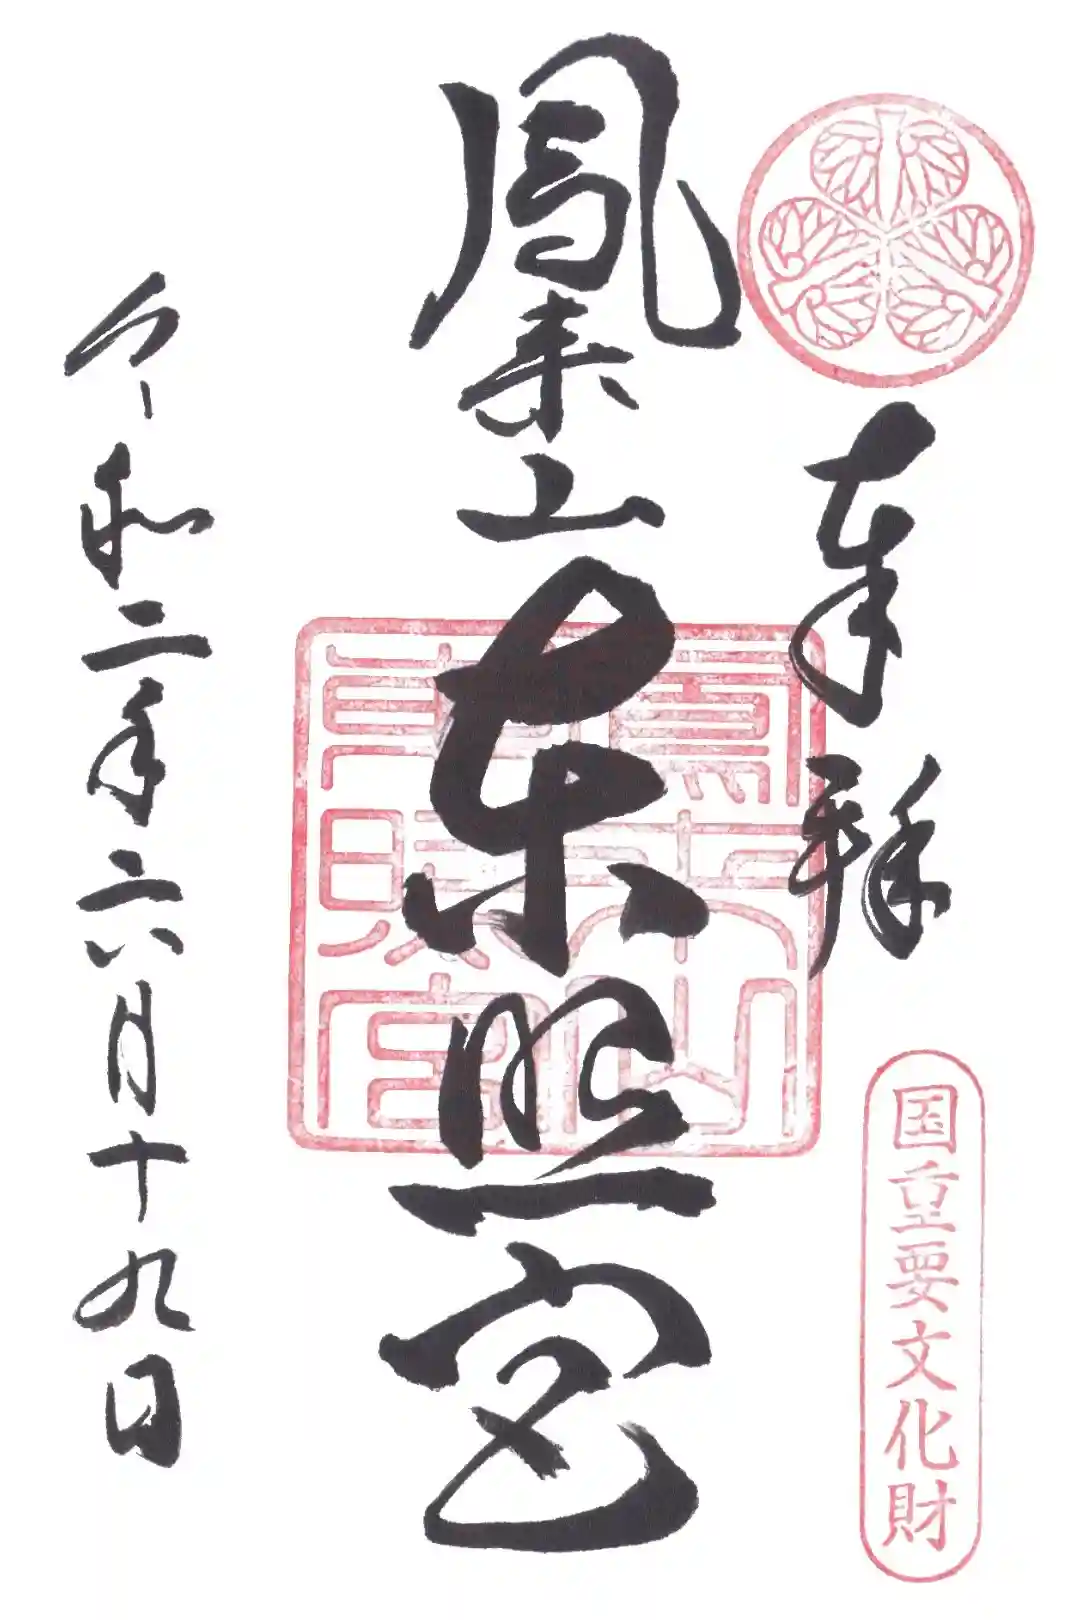 奉拝
国重要文化財
鳳来山東照宮
鳳来山東照宮
令和二年六月十九日